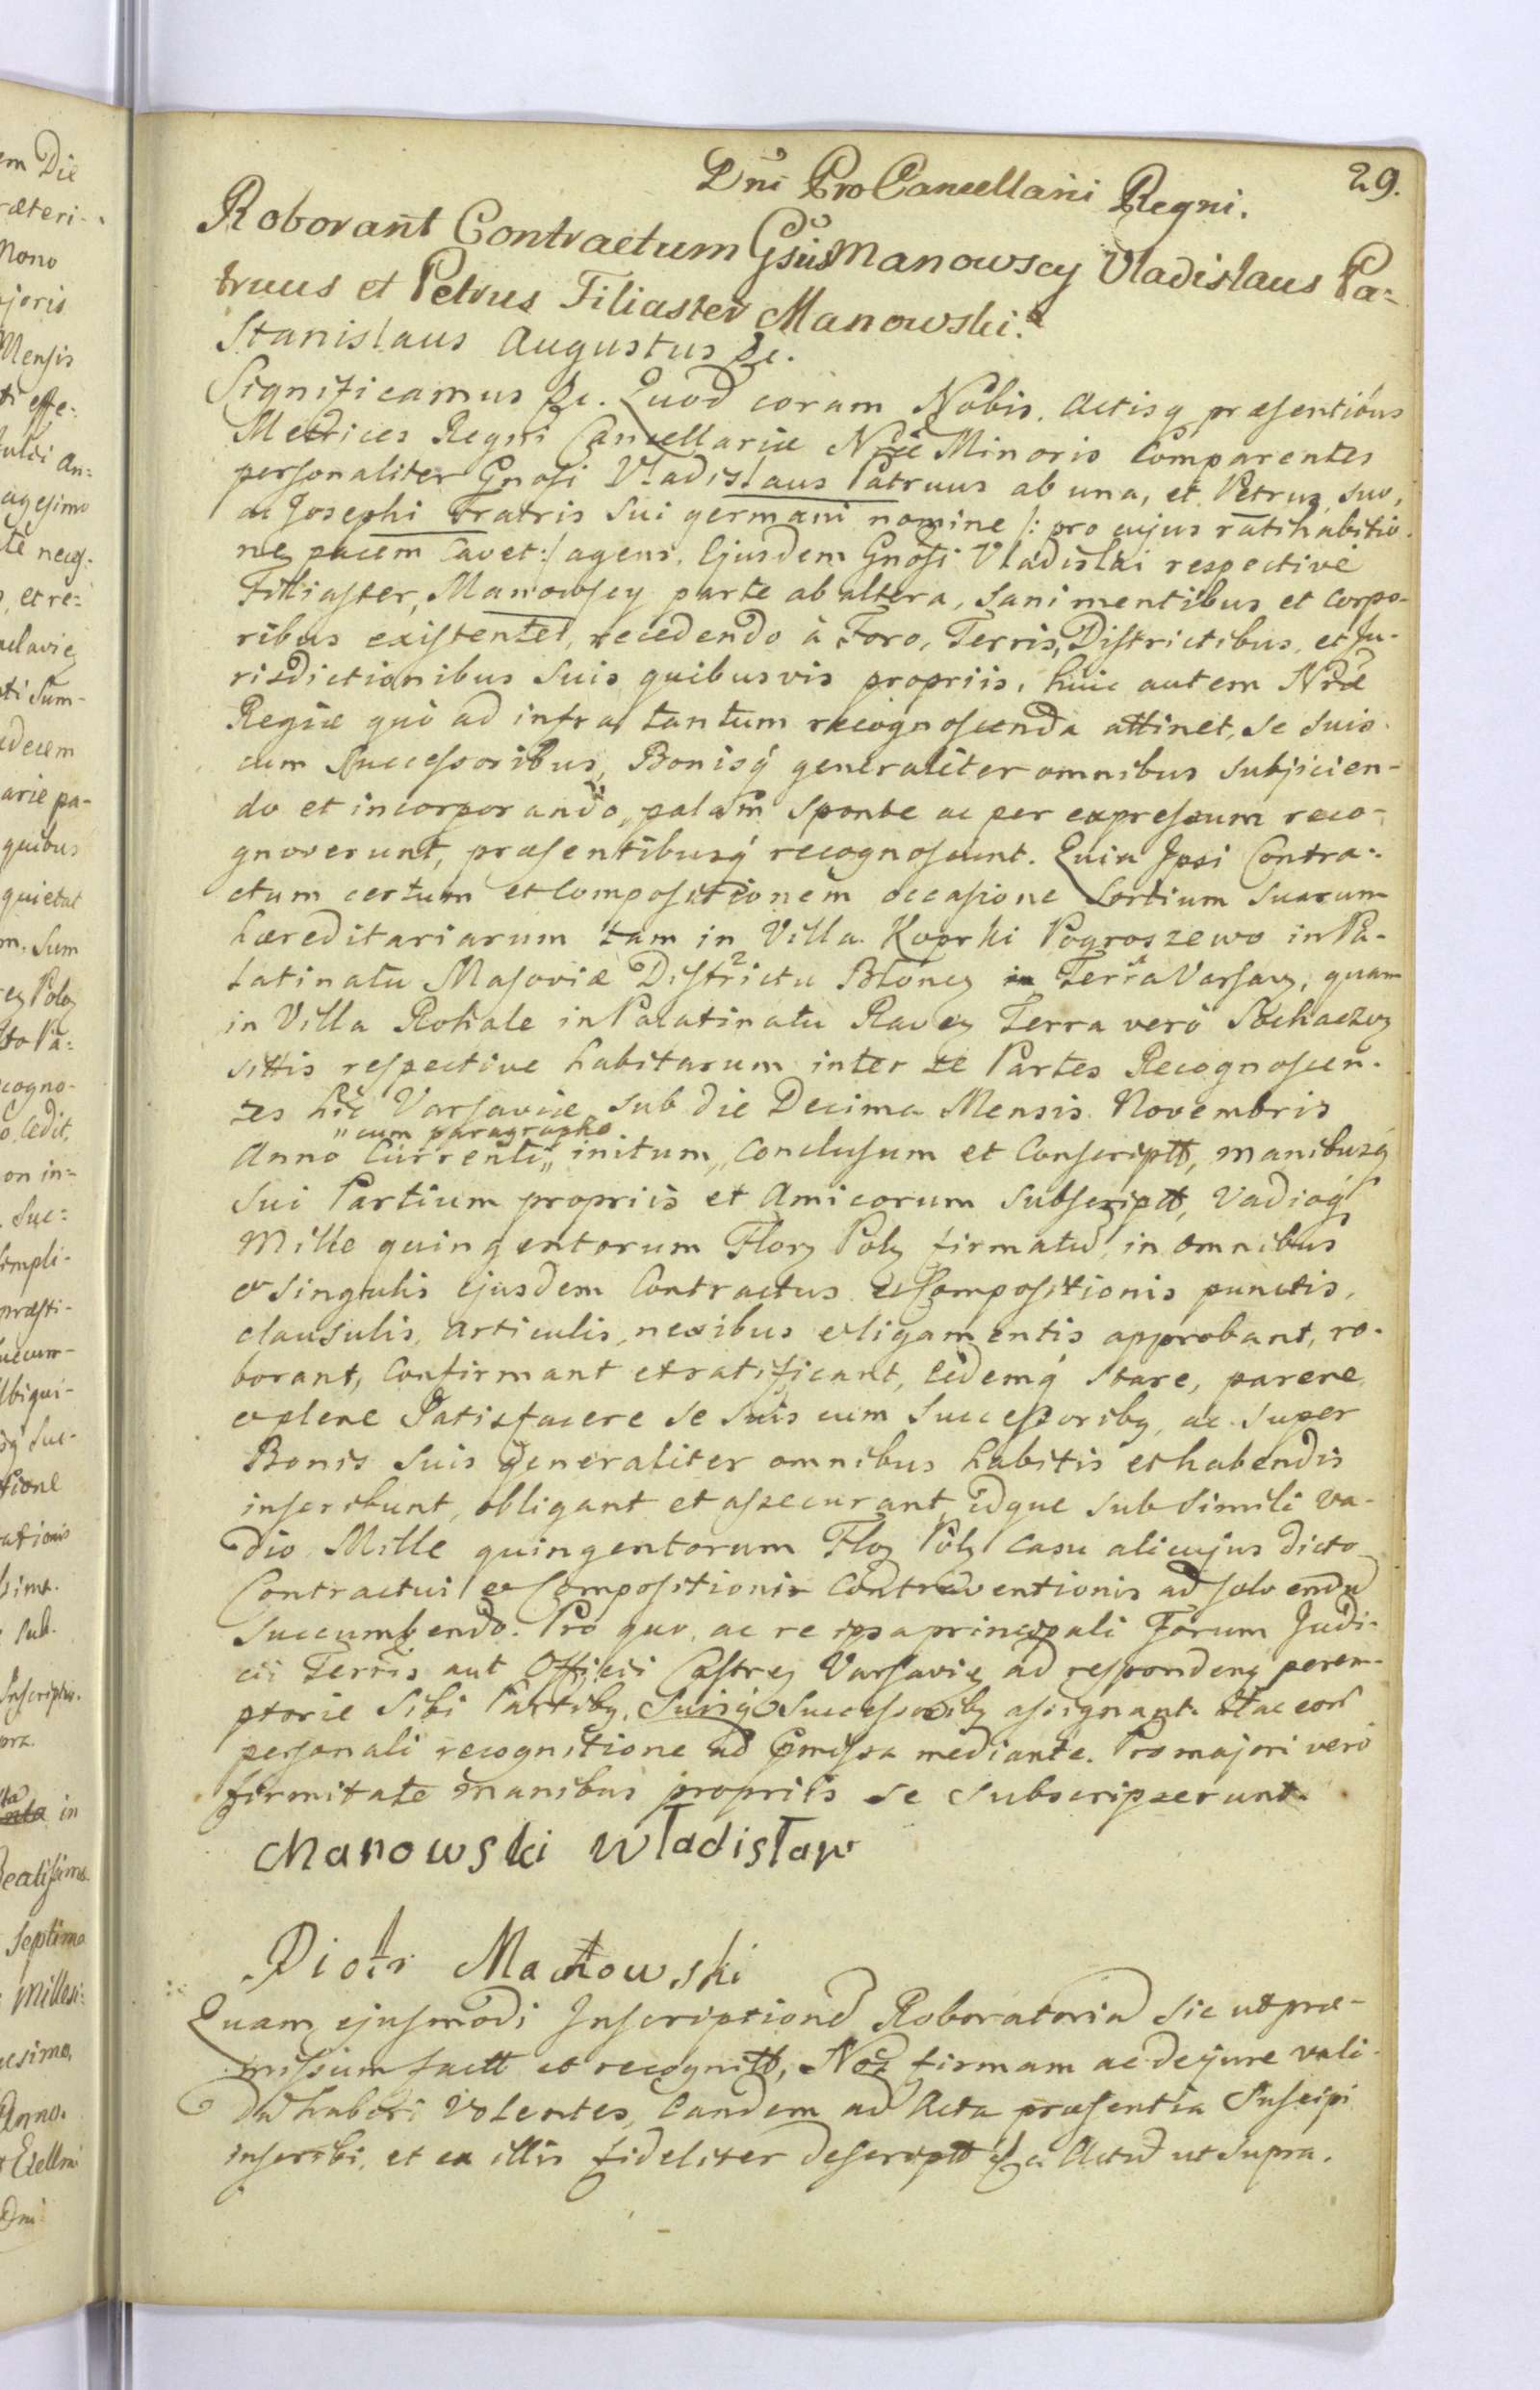 Dni ProCancellarii Regni. 29.
Roborant Contractum Gsi Manowscy Vladislaus Pa-
truus et Petrus Filiaster Manowski.
Stanislaus Augustus &c.
Significamus &c. Quod coram Nobis. Actisq præsentibus
Metrices Regni Cancellariæ Nræ Minoris Comparentes
personaliter Gnosi Vladislaus Patruus ab una, et Petrus suo,
ac Josephi Fratris sui germani nomine /: pro cujus ratihabitio-
ne pacem Cavet:/ agens. Ejusdem Gnosi Vladislai respectivè
Filiaster, Manowscy parte ab altera, sani mentibus et corpo-
ribus existentes, recedendo à Foro, Terris, Districtibus, et Ju-
risdictionibus suis quibusvis propriis, huic autem Nræ
Regiæ quò ad infra tantum recognoscenda attinet, se suis
cum Successoribus, Bonisq generaliter omnibus subjicien-
do et incorporando, palam sponte ac per expressum reco-
gnoverunt, præsentibusq recognoscunt. Quia Ipsi Contra-
ctum certum et Compositionem occasione Sortium suarum
hæreditariarum tam in Villa Koprki Pogroszewo in Pa-
latinatu Masoviæ Districtu Błoney in Terra Varsav, quam
in Villa Rokale in Palatinatu Ravey Terra verò Sochaczvy
sittis respective habitarum inter se Partes Recognoscen-
tes hic Varsaviæ sub die Decima Mensis Novembris
"cum paragrapho
Anno Currenti" initum, Conclusum et Conscriptt, manibusq
sui Partium propriis et Amicorum subscriptt, Vadioq
Mille quingentorum Flory Poly firmatu in omnibus
& singulis ejusdem Contractus & Compositionis punctis,
clausulis, articulis, nexibus & ligamentis approbant, ro-
borant, Confirmant et ratificant, Eidemq stare, parere
& plene Satisfacere se suis cum Successoriby, ac super
Bonis suis generaliter omnibus habitis et habendis
inscribunt, obligant et assecurant, idque sub simili va-
dio Mille quingentorum Flog Poly Casu alicujus dicto
Contractui & Compositionis Contraventionis ad solvendu
succumbendo. Pro quo, ac re ipsa principali Forum Judi-
cii Terris aut Officii Castrey Varsavie ad respondeng perem-
ptorie sibi Partiby, Suisq Successoriby assignant. Hac eor
personali recognitione ad pmissa mediante. Pro majori verò
firmitate manibus propriis se subscripserunt.
Manowski Władisław
Piotr Manowski
Quam ejusmodi Inscriptione Roboratoria sic ut præ-
missum factt et recognitt, Nos firmam ac de jure vali-
du haberi Volentes, Eandem ad Acta præsentia Suscipi
inscribi, et ex illis fideliter descriptt &c Actu ut supra.